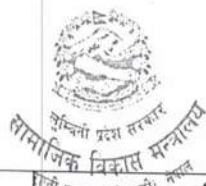 लुम्बिनी प्रदेश सरकार
सामाजिक विकास मन्त्रालय
नेपाल